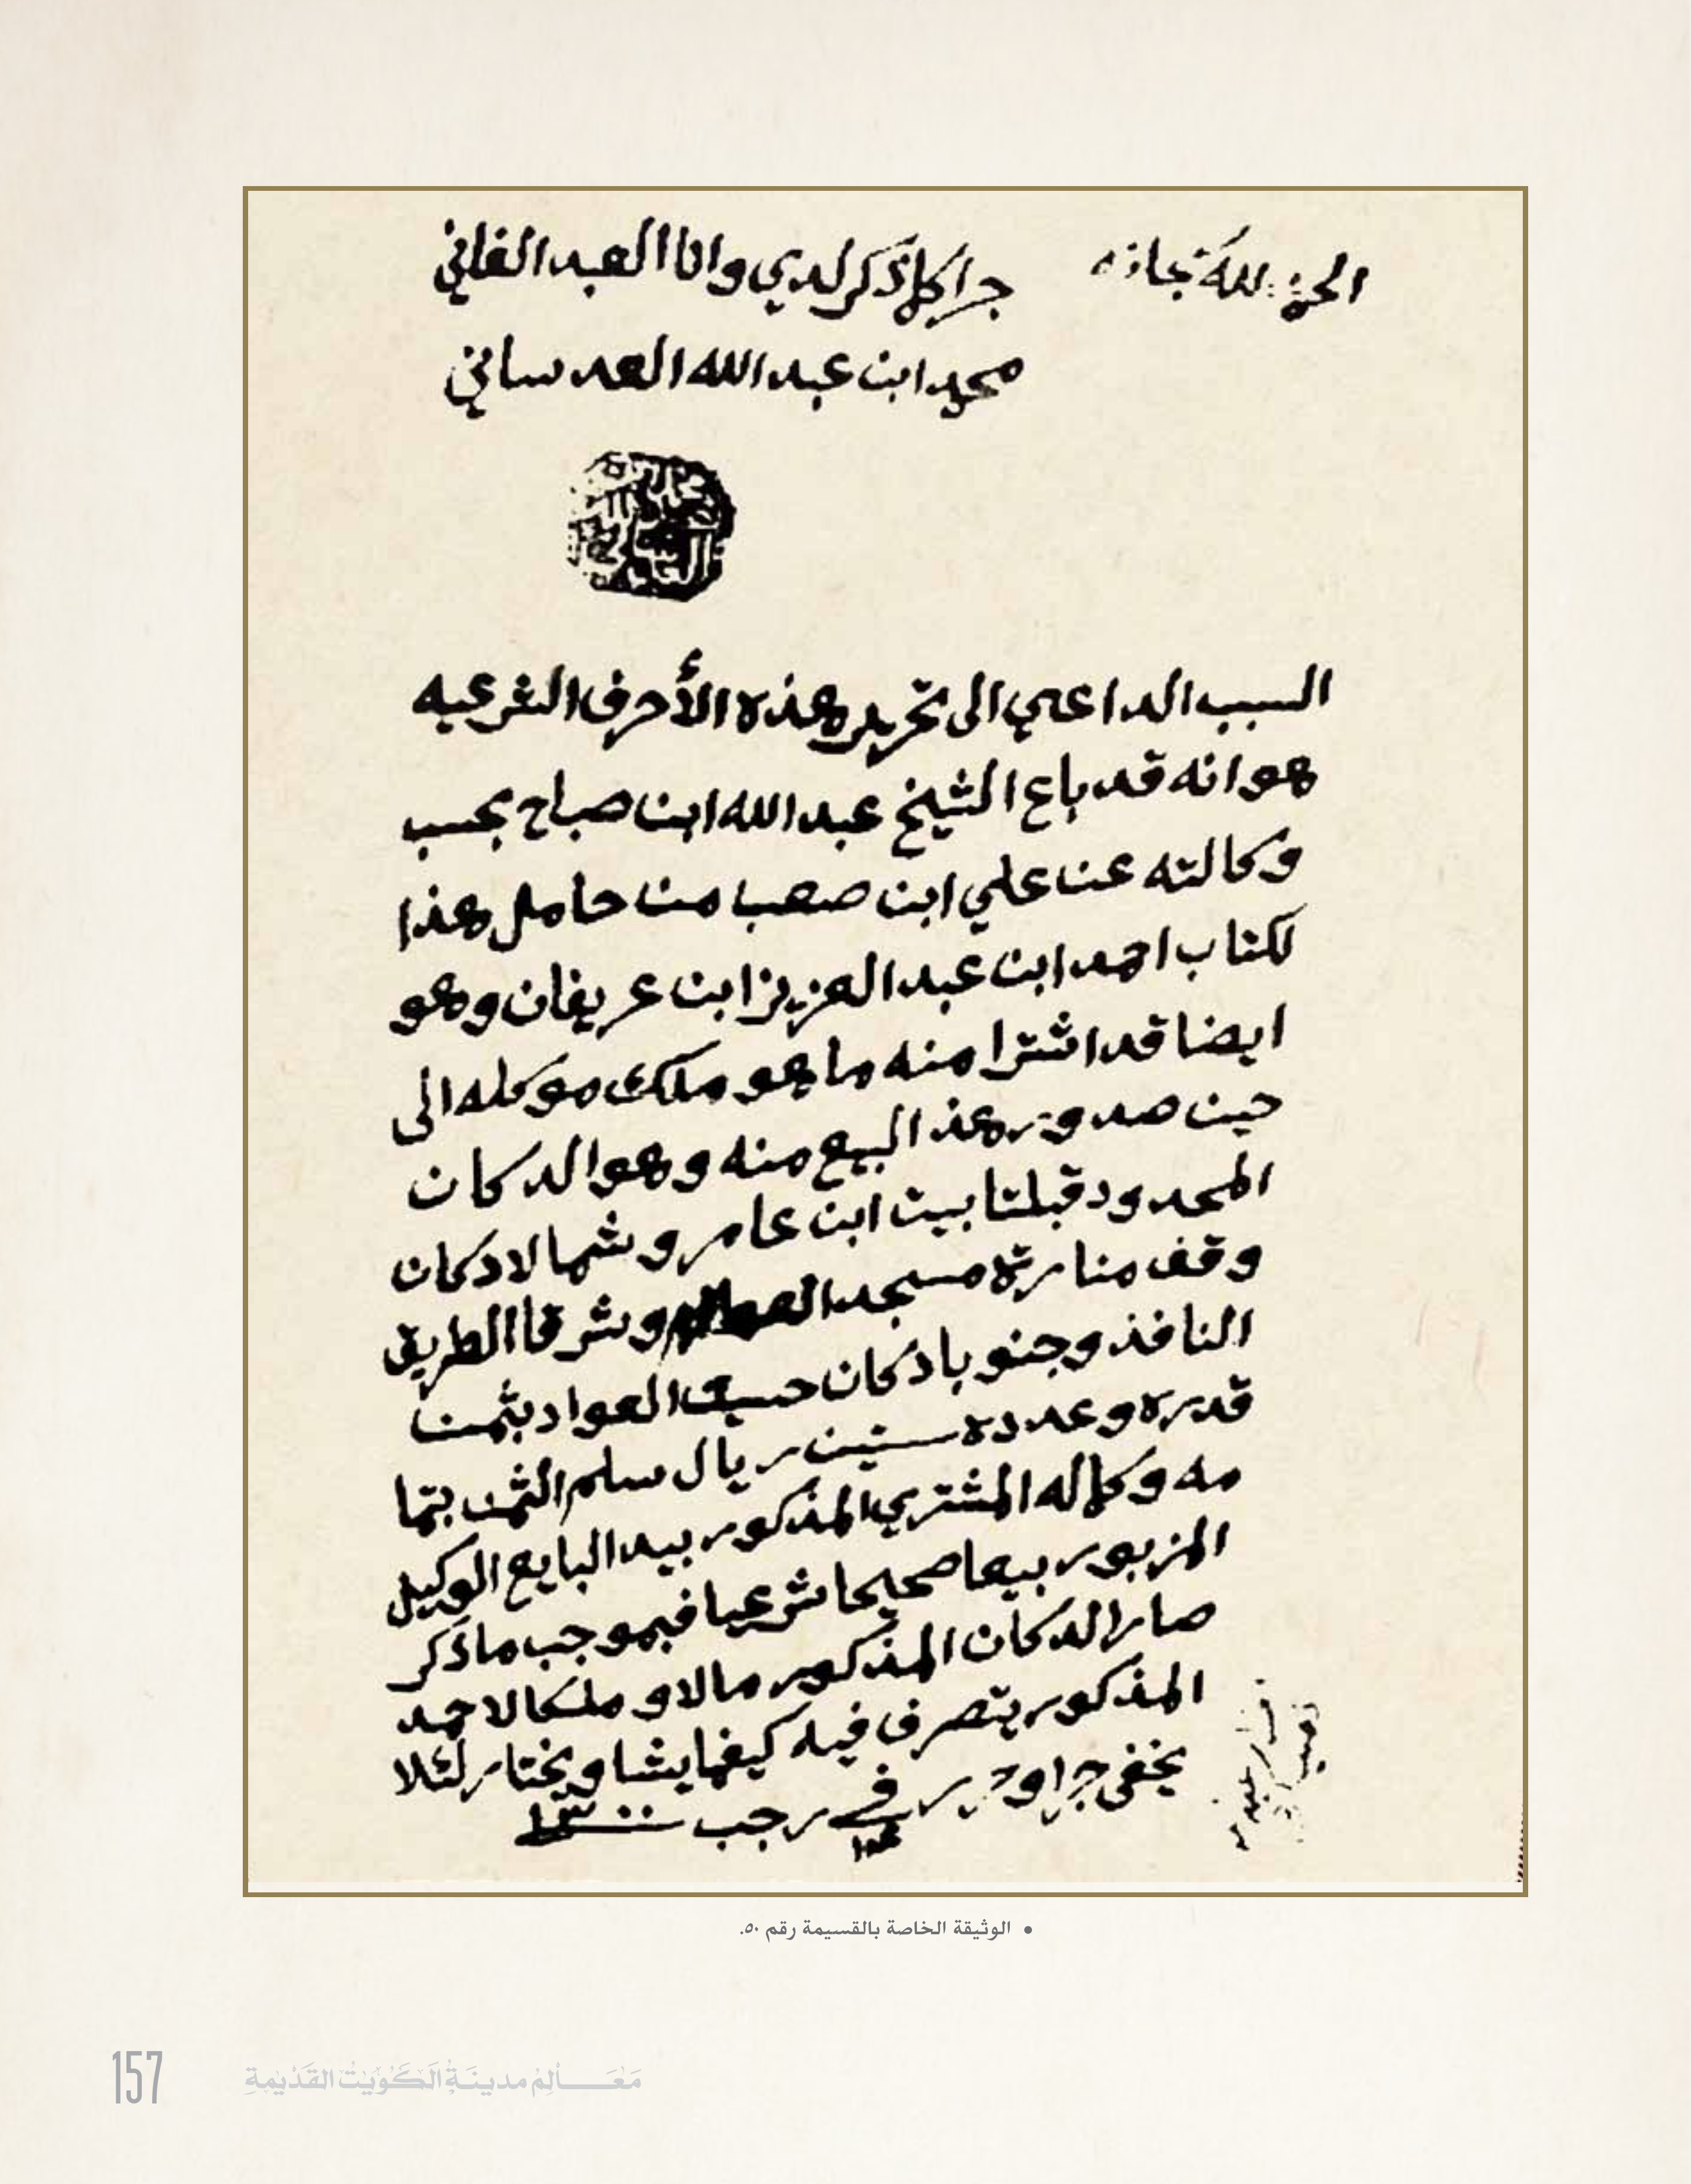 الحمد لله سبحانه
جرا كلما ذكر لدي وانا العبد الفاني
محمد ابن عبد الله العدساني
السبب الداعي الى تحرير هذه الأحرف الشرعيه
هو انه قد باع الشيخ عبد الله ابن صباح بحسب
وكالته عن علي ابن صعب من حامل هذا
لكتاب احمد ابن عبد العزيز ابن عريفان وهو
ايضا قد اشترا منه ما هو ملك موكله الى
حين صدور هذا البيع منه وهو الدكان
المحدود قبلتا بيت ابن عامر وشمالا دكان
وقف منارة مسجد وشرقا الطريق
النافذ وجنوبا دكان حسين العواد بثمن
قدره وعدده ستين ريال سلم الثمن بتما
مه وكماله المشتري المذكور بيد البايع الوكيل
المزبور بيعا صحيحا شرعيا فبموجب ما ذكر
صار الدكان المذكور مالا وملكا لاحمد
المذكور يتصرف فيه كيفما يشا ويختار لئلا
يخفى جرا وحرر في رجب ١٣٠٠
الوثيقة الخاصة بالقسيمة رقم ٥٠.
157
مَعَالِم مدينَة الكُوَيْت القَدْيمَة